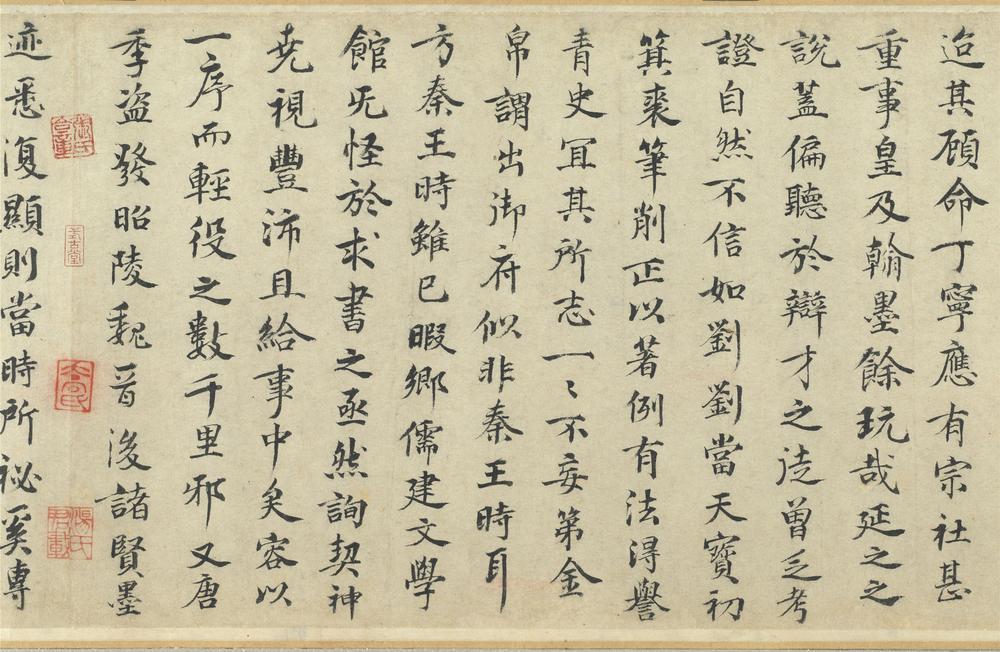 迨其顧命丁寧應有宗社甚
重事皇及翰墨餘玩哉延之之
說蓋偏聽於辯才之徒曾乏考
證自然不信如劉劉當天寶初
箕裘筆削正以著例有法得譽
青史冝其所志一〻不妄第金
帛謂出御府似非秦王時耳
方秦王時雖已暇鄉儒建文學
館旡怪於求書之亟然詢契神
尭視豐沛且給事中矣容以
一序而輕役之數千里邪又唐
季盜發昭陵魏晉後諸賢墨
迹悉復顯則當時所祕奚專